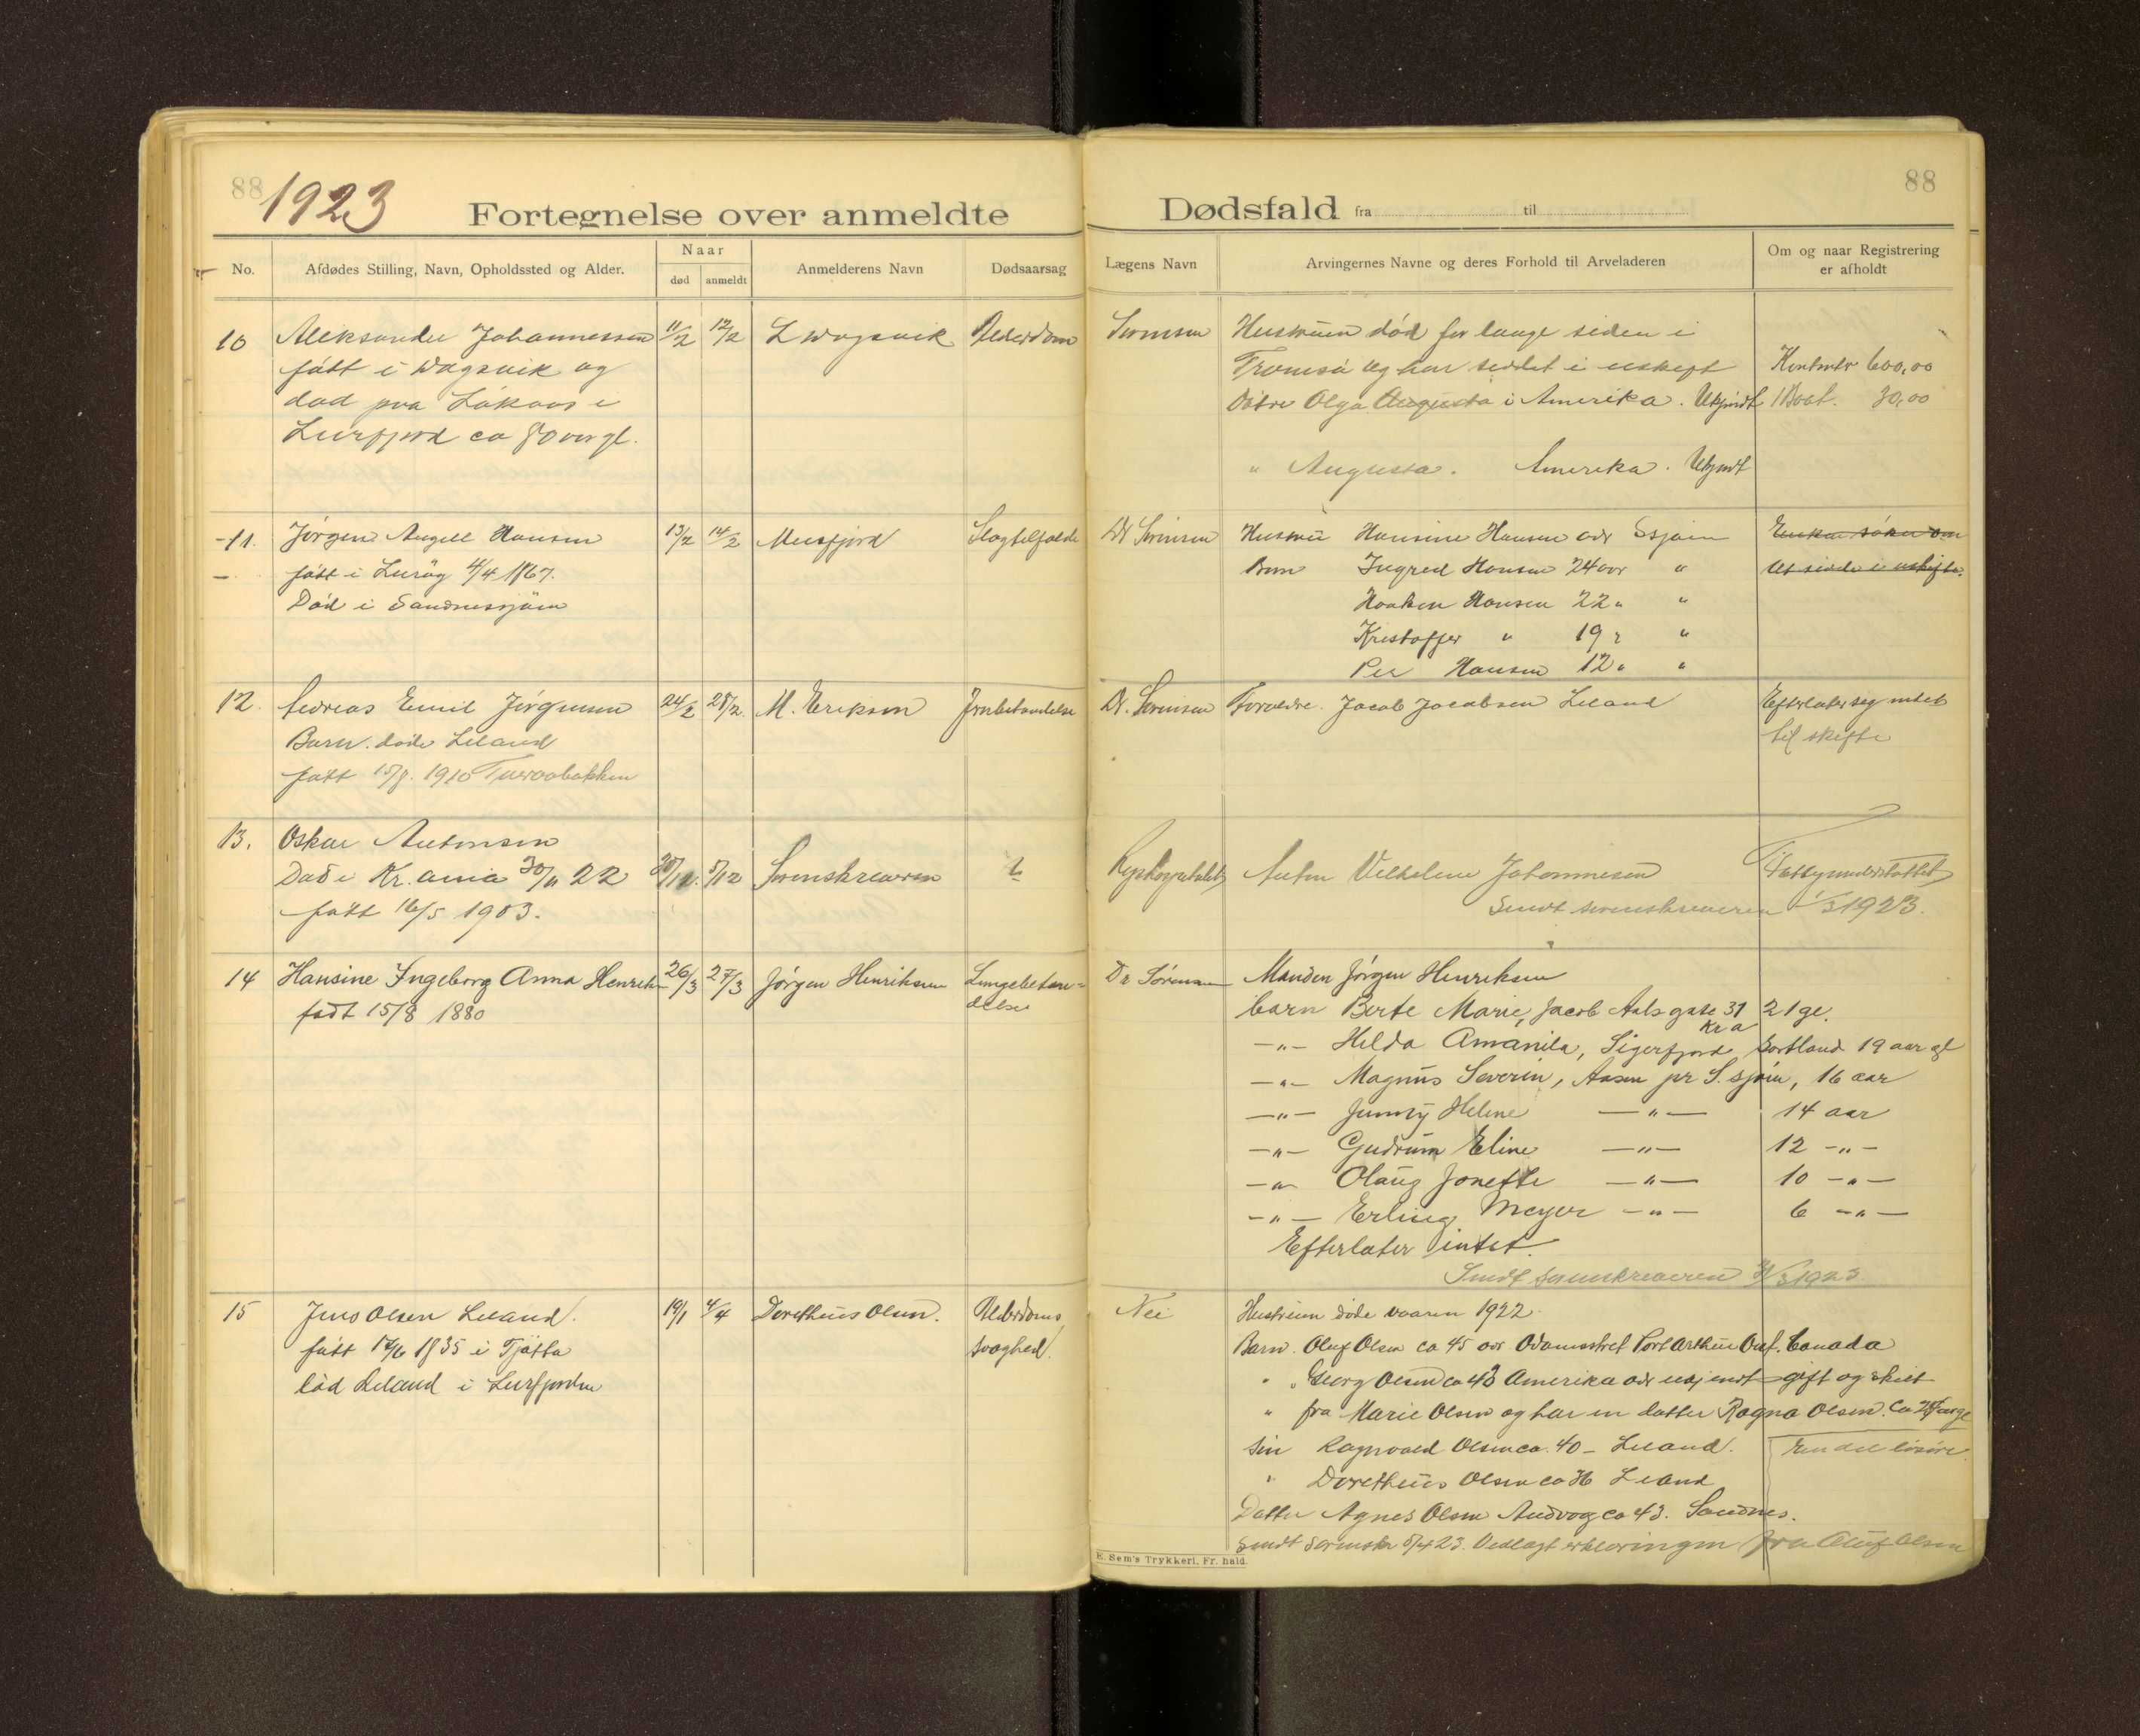 88
1923
Fortegnelse over anmeldte
Dødsfald fra til
88
No.
Afdødes Stilling, Navn, Opholdssted og Alder.
Naar
død
anmeldt
Anmelderens Navn
Dødsaarsag
Lægens Navn
Arvingernes Navne og deres Forhold til Arveladeren
Om og naar Registrering
er afholdt
10 Aleksander Johannessen 11/2 12/2 L Wågsvik Alderdom
født i Wågsvik og
død paa
Leirfjord ca 80 aar gl.
Sörensen Hustruen död for lange siden i
Tromsö og har siddet i uskift
Döttre Olga Augusta i Amerika. Ukjendt
" Augusta. Amerika. Ukjendt
Kontanter 600,00
1 Baat. 30,00
11. Jörgen Angell Hansen 13/2 14/2 Meisfjord Slagtilfælde
födt i Luröy 4/4 1867.
Död i Sandnessjöen
Dr Sörensen Hustru Hansine Hansen adr Ssjöen
Barn Ingred Hansen 24 aar "
Haaken Hansen 22 " "
Kristoffer " 19 " "
Per Hansen 12 " "
Enken söker om
at sidde i uskifte.
12. Andreas Emil Jörgensen 24/2 28/2. M. Erikson
Barn. döde Leland
födt 15/8. 1910
Dr. Sörensen Foreldre. Jacob Jacobsen Leland
Efterlater sig intet
til skifte
13. Oskar Antonsen
Død i Kr.ania 30/11 22 30/11. 5/12 Sorenskriveren
født 16/5 1903.
Rigshospitalet Anton Vilhelm Johannesen
Sendt sorenskriveren 1/3 1923.
Fattigunderstøttet
14 Hansine Ingeborg Anna Henriks 26/3 27/3 Jörgen Henriksen Lungebetæn-
delse
født 15/8 1880
Dr Sörensen Manden Jörgen Henriksen
barn Berte Marie, Jacob Aals gate 31 21 gl.
Kr a
—"— Helda Amanda, Sigerfjord Sortland 19 aar gl
—"— Magnus Severin, Aasen pr S.sjöen, 16 aar
—"— Jenny Helene —"— 14 aar
—"— Gudrun Eline —"— 12 —"—
—"— Olaug Jonette —"— 10 —"—
—"— Erling Meyer —"— 6 —"—
Efterlater intet.
Sendt sorenskriveren 1923
15 Jens Olsen Leland. 19/1 4/4 Dorotheus Olsen. Alderdoms
svaghed.
født 1835 i Tjötta
död Leland i Leirfjorden
Nei Hustruen døde vaaren 1922.
Barn. Oluf Olsen ca 45 aar Port Arthur Ont. Canada
" Georg Olsen ca 43 Amerika adr ukjendt gift og skilt
" fra Marie Olsen og har en datter Ragna Olsen.
Sön Ragnvald Olsen ca. 40 – Leland. En del lösöre
" Dorotheus Olsen ca 36 Leland
Datter Agnes Olsen ca 43. Sandnes.
Sendt Sorenskr 5/4 23. Vedlagt erkleringen fra Oluf Olsen
E. Sem's Trykkeri, Fr.hald.